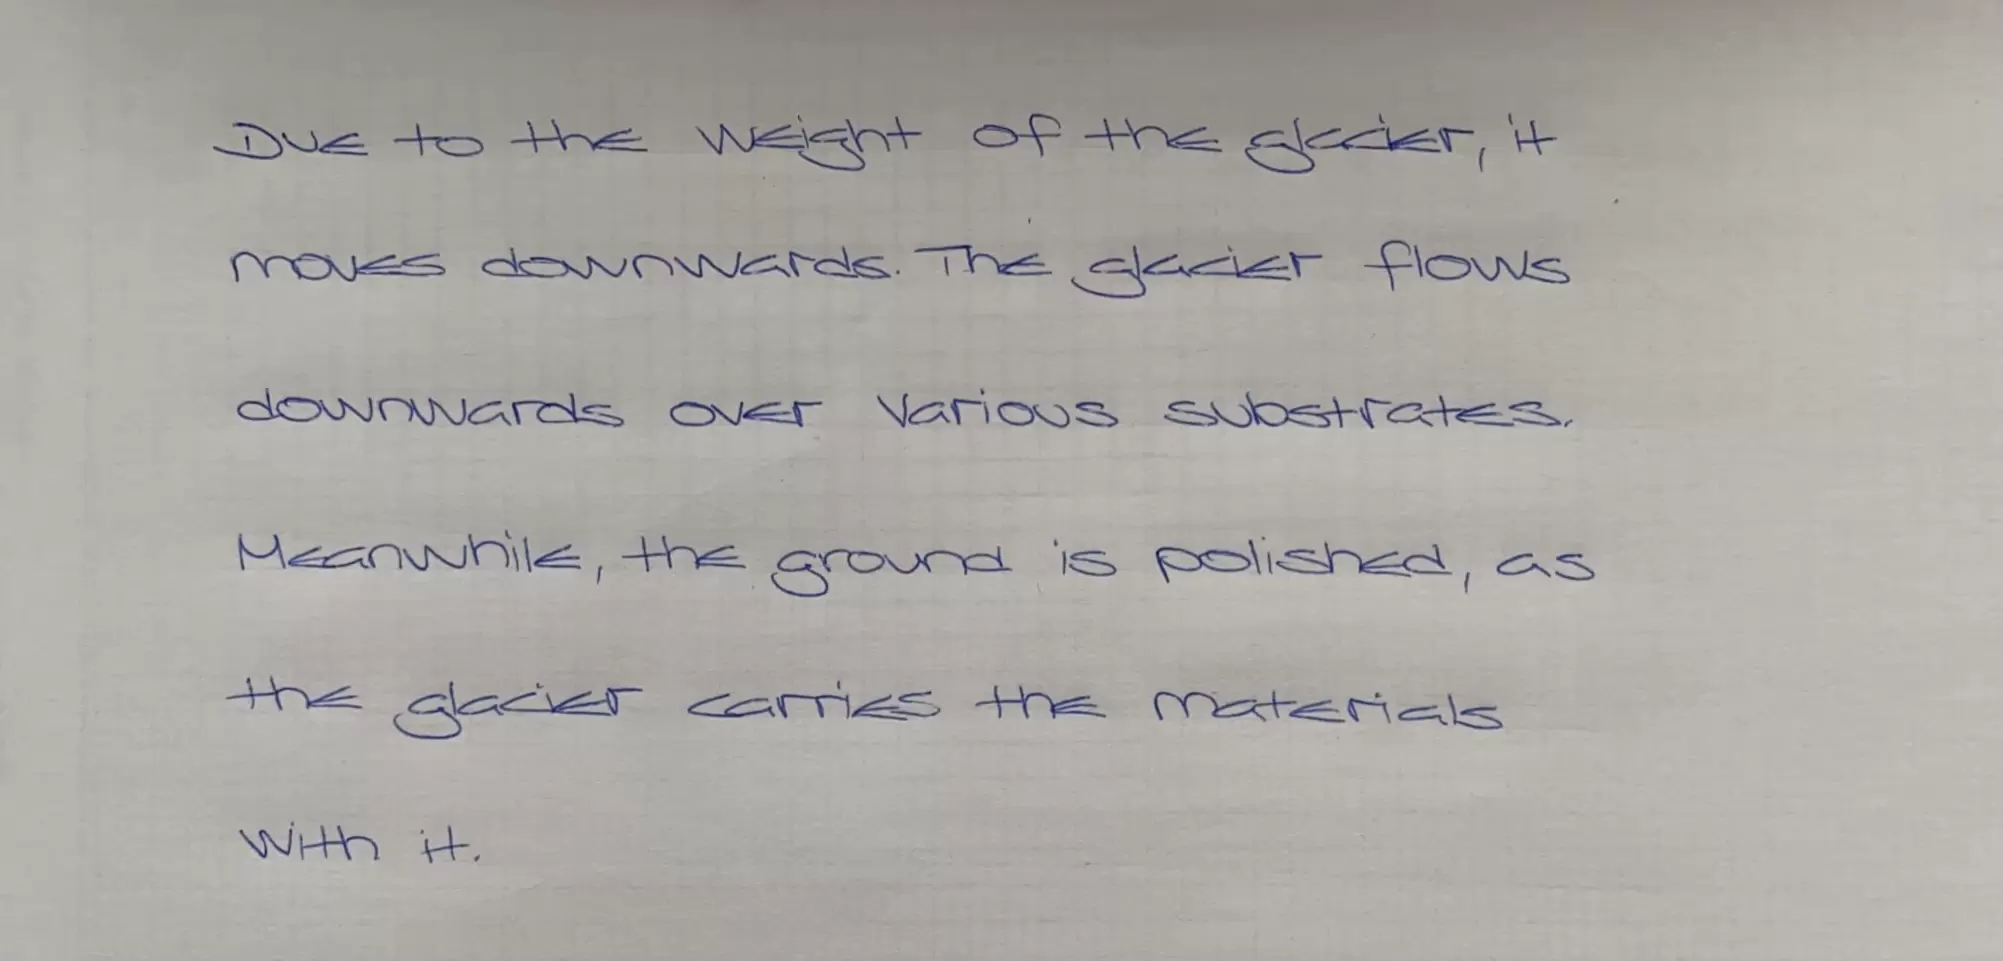 Due to the weight of the glacier, it
moves downwards. The glacier flows
downwards over various substrates.
Meanwhile, the ground is polished, as
the glacier carries the materials
with it.